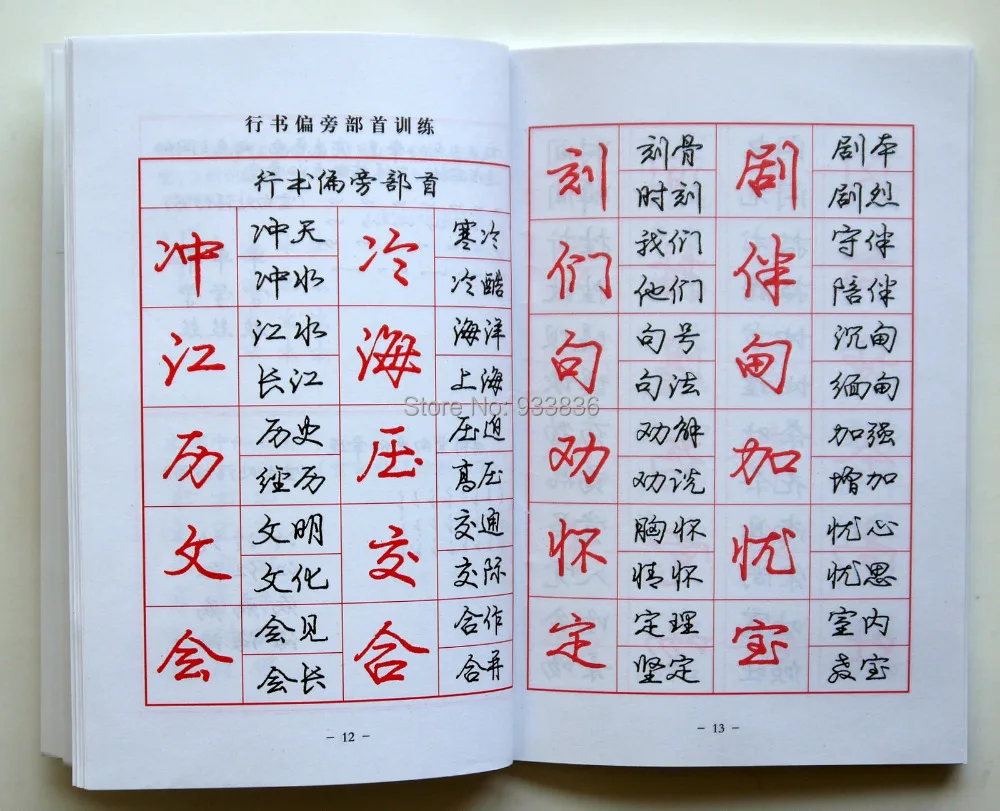 行书偏旁部首训练
行书偏旁部首
冲 冲天 冷 寒冷
冲水 冷酷
江 江水 海 海洋
长江 上海
历 历史 压 压迫
经历 高压
文 文明 交 交通
文化 交际
会 会见 合 合作
会长 合并
- 12 -
刻 刻骨 剧 剧本
时刻 剧烈
们 我们 伴 守伴
他们 陪伴
句 句号 甸 沉甸
句法 缅甸
劝 劝解 加 加强
劝说 增加
怀 胸怀 忧 忧心
情怀 忧思
定 定理 室 室内
坚定 教室
- 13 -
Store No: 933836